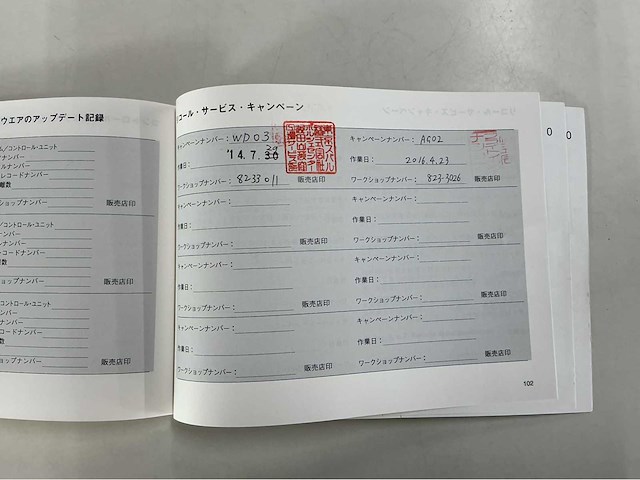 ウエアのアップデート記録
コール・サービス・キャンペーン
ム/コントロール・ユニット
ナンバー
ルナンバー
レコードナンバー
離数
ショップナンバー
販売店印
コントロール・ユニット
ンバー
ナンバー
コードナンバー
数
ョップナンバー
販売店印
コントロール・ユニット
ンバー
ナンバー
コードナンバー
数
ョップナンバー
販売店印
キャンペーンナンバー: WD03
作業日: '14.7.30
ワークショップナンバー: 8233011
東京スバル
株式会社
キャンペーンナンバー: AG02
作業日: 2016.4.23
ワークショップナンバー: 823-3026
販売店印
キャンペーンナンバー:
作業日:
ワークショップナンバー:
販売店印
キャンペーンナンバー:
作業日:
ワークショップナンバー:
販売店印
キャンペーンナンバー:
作業日:
ワークショップナンバー:
販売店印
キャンペーンナンバー:
作業日:
ワークショップナンバー:
販売店印
キャンペーンナンバー:
作業日:
ワークショップナンバー:
販売店印
キャンペーンナンバー:
作業日:
ワークショップナンバー:
販売店印
102
0
0